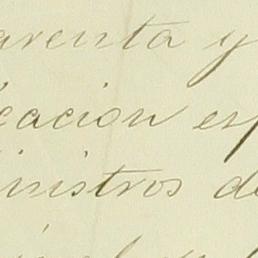 arenta y
cacion esp
inistros de